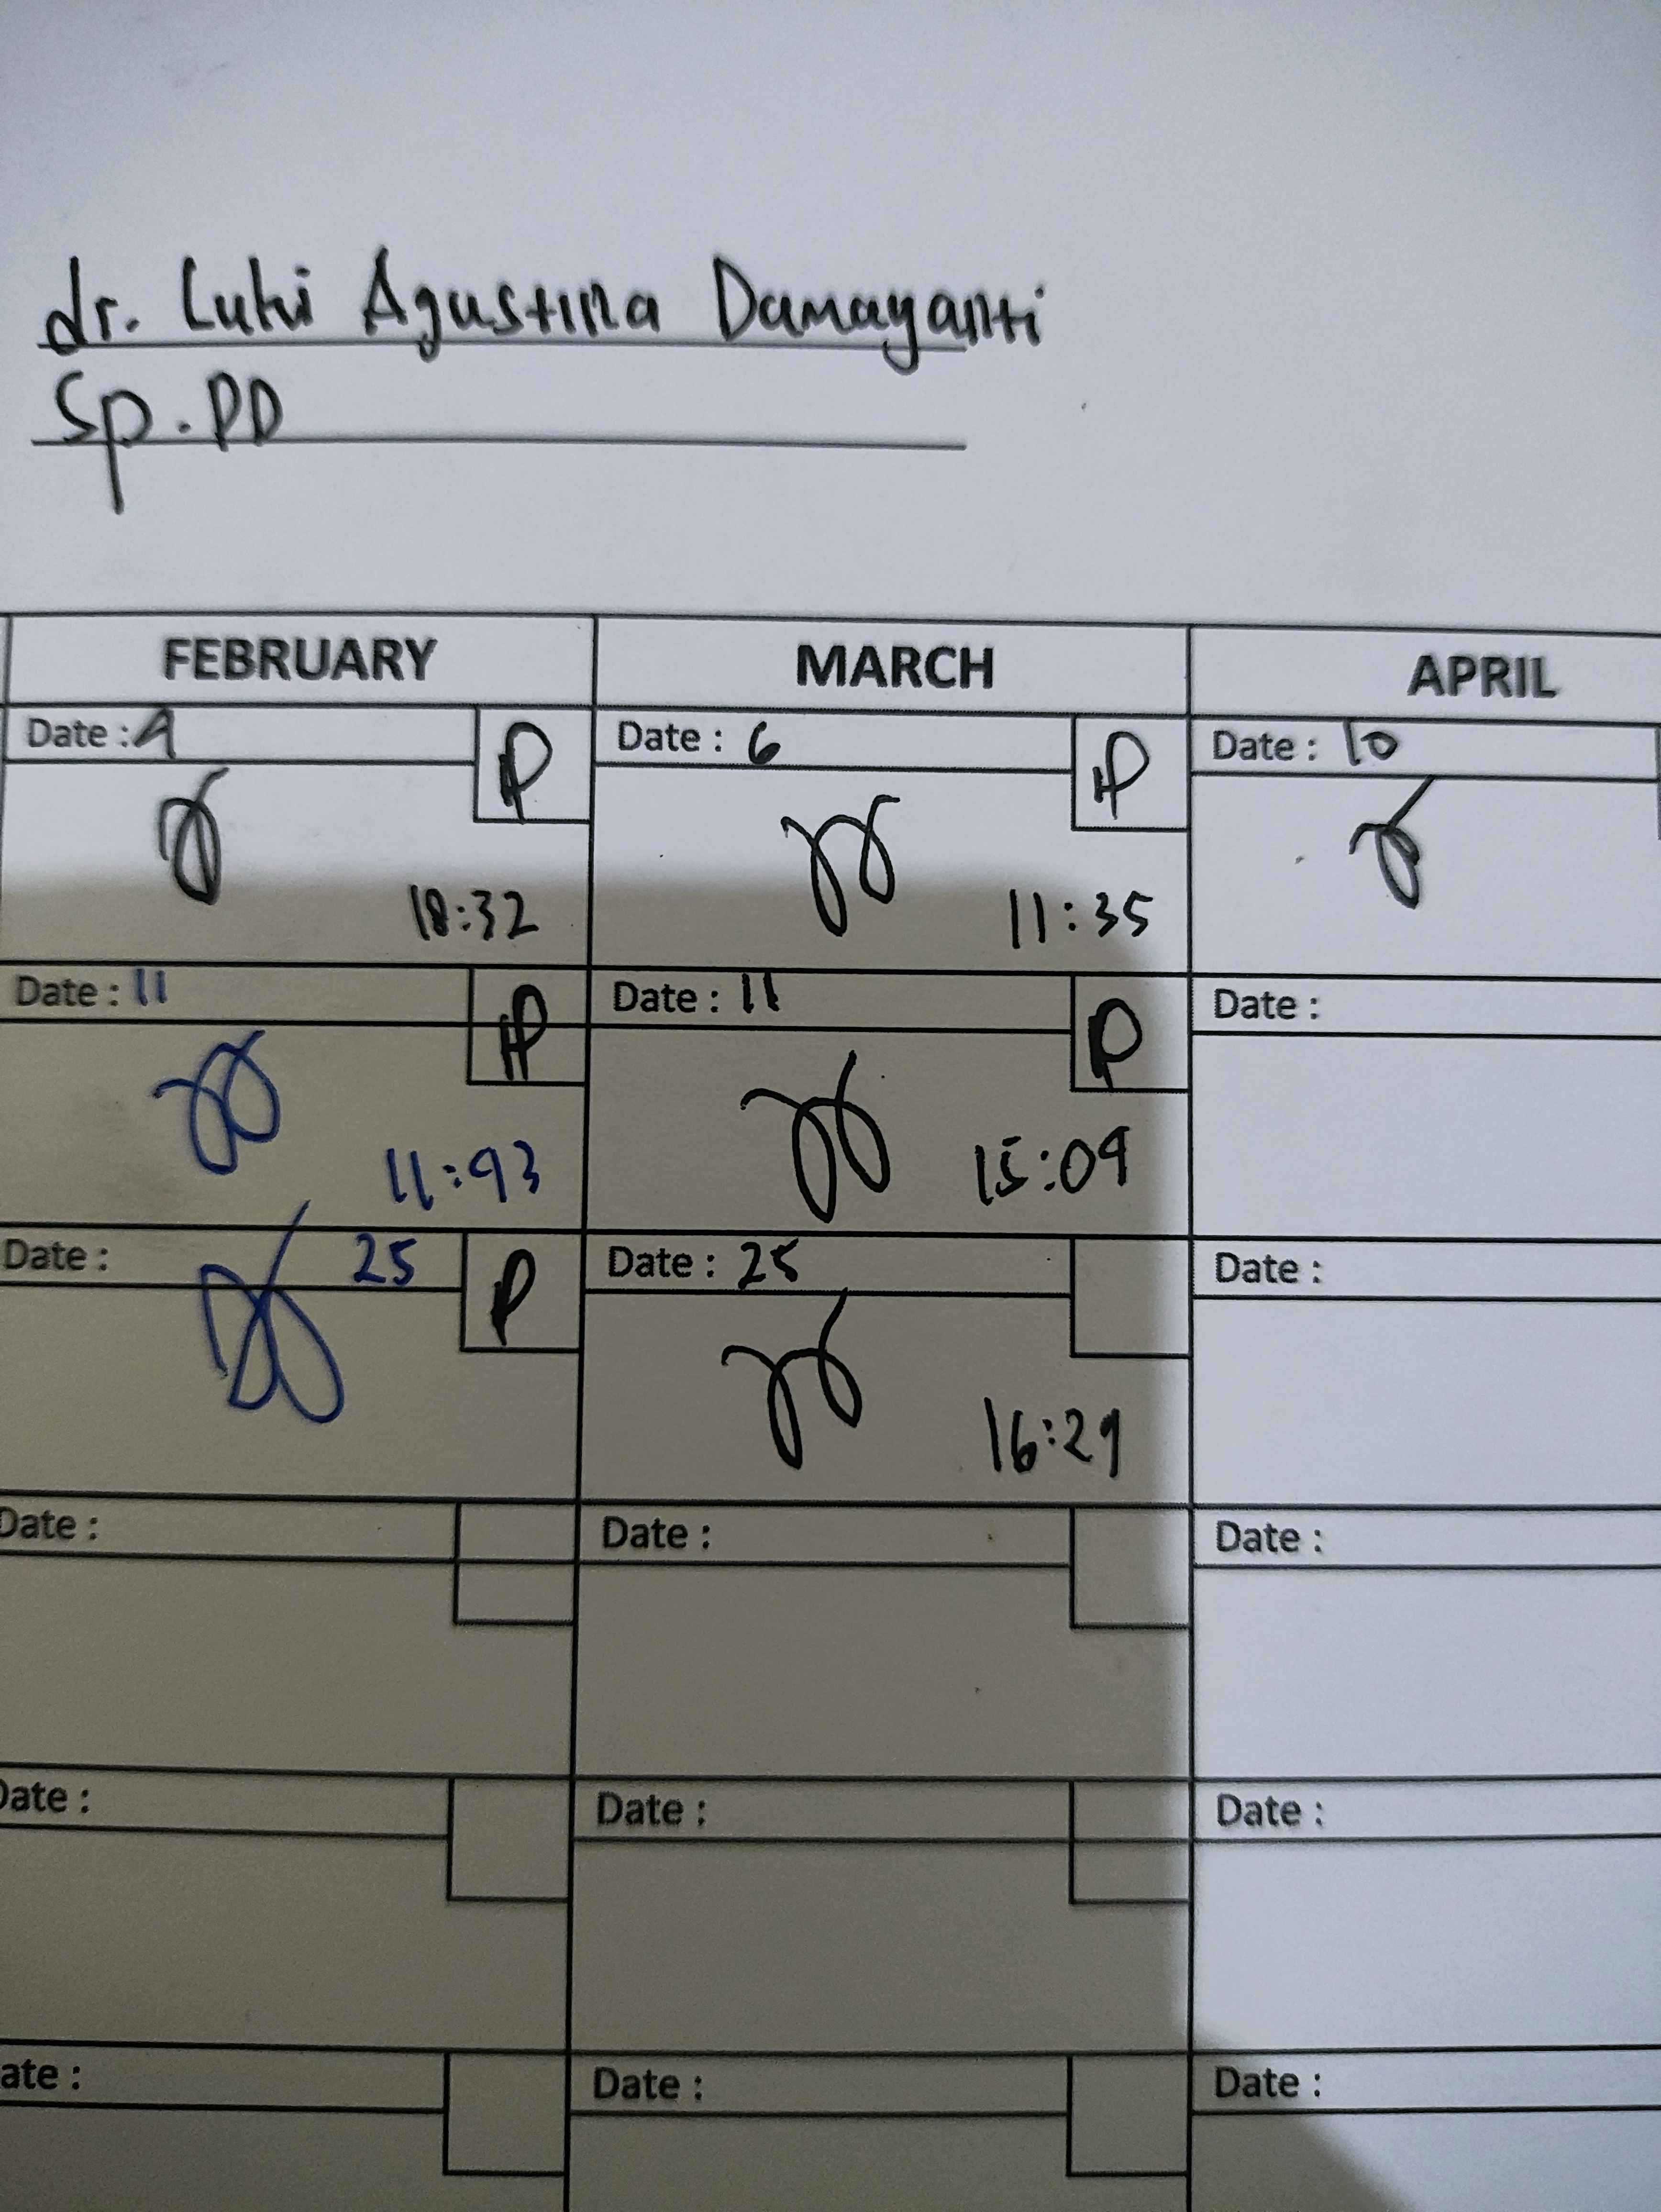 dr. Lukvi Agustina Damayanti
Sp.PD
FEBRUARY MARCH APRIL
Date : 4 P Date : 6 P Date : 10
18:32 11:35
Date : 11 P Date : 11 P Date :
11:43 15:09
Date : 25 P Date : 25 Date :
16:29
Date : Date : Date :
Date : Date : Date :
ate : Date : Date :